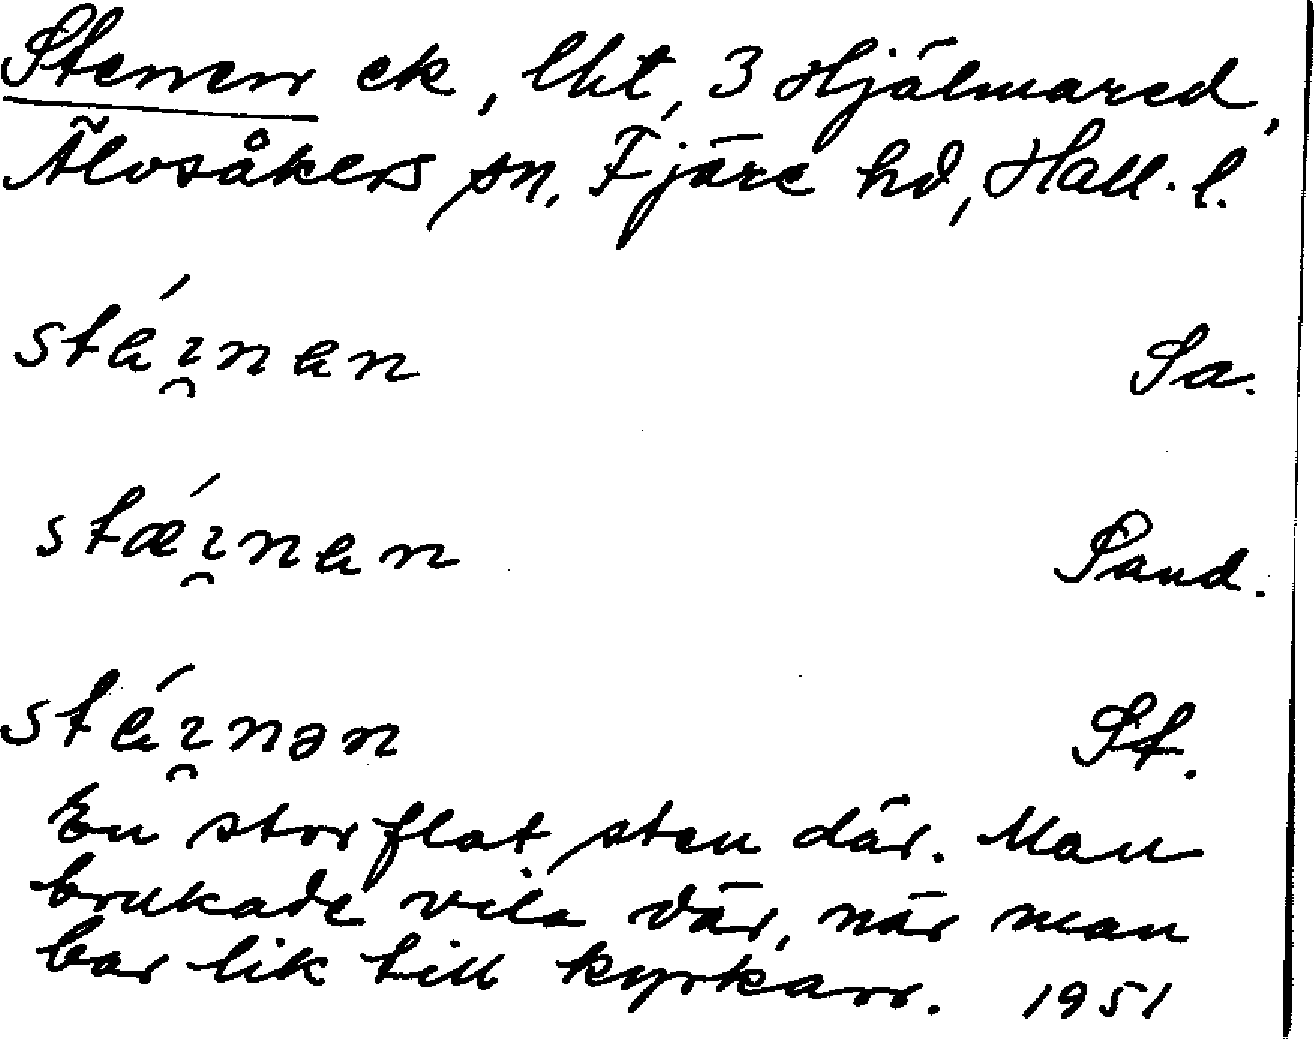 Stenen ek, lht, 3 Hjälmared,
Älvsåkers sn, Fjäre hd, Hall. l.
stéɩ̯nen Sa.
stǽɩ̯nen Sand.
stéɩ̯nən St.
En stor flat sten där. Man
brukade vila där, när man
bar lik till kyrkan. 1951